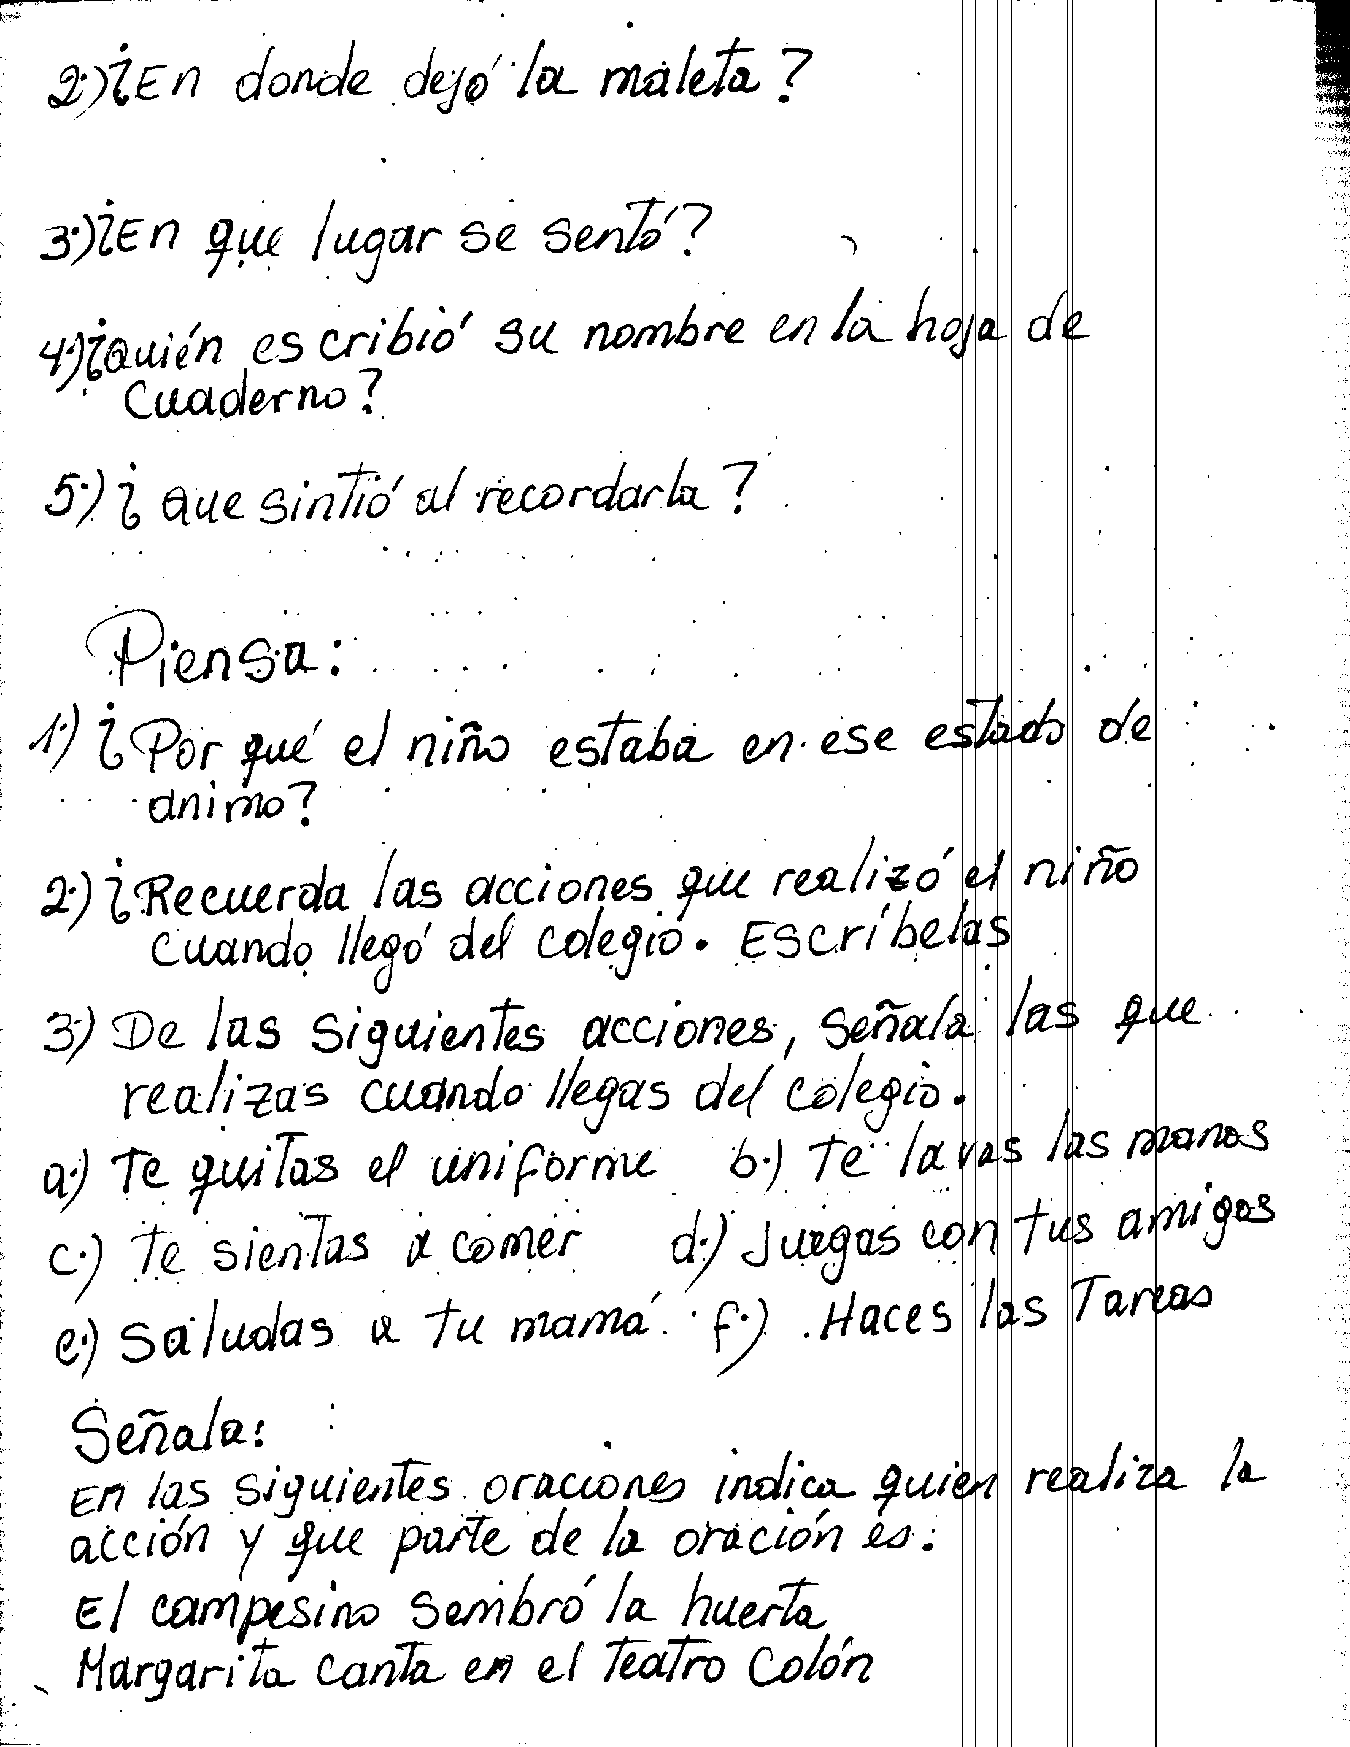 2.) ¿En donde dejó la maleta?
3.) ¿En que lugar se sentó?
4.) ¿Quién escribió su nombre en la hoja de
cuaderno?
5.) ¿Que sintió al recordarla?
Piensa:
1.) ¿Por qué el niño estaba en ese estado de
animo?
2.) ¿Recuerda las acciones que realizó el niño
cuando llegó del colegio. Escríbelas
3.) De las siguientes acciones, señala las que
realizas cuando llegas del colegio.
a.) Te quitas el uniforme b.) Te lavas las manos
c.) Te sientas a comer d.) Juegas con tus amigos
e.) Saludas a tu mamá. f.) Haces las Tareas
Señala:
En las siguientes oraciones indica quien realiza la
acción y que parte de la oración es:
El campesino sembró la huerta
Margarita canta en el Teatro Colón